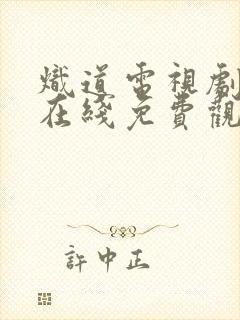 熾道電視劇
在綫免費觀
許中正